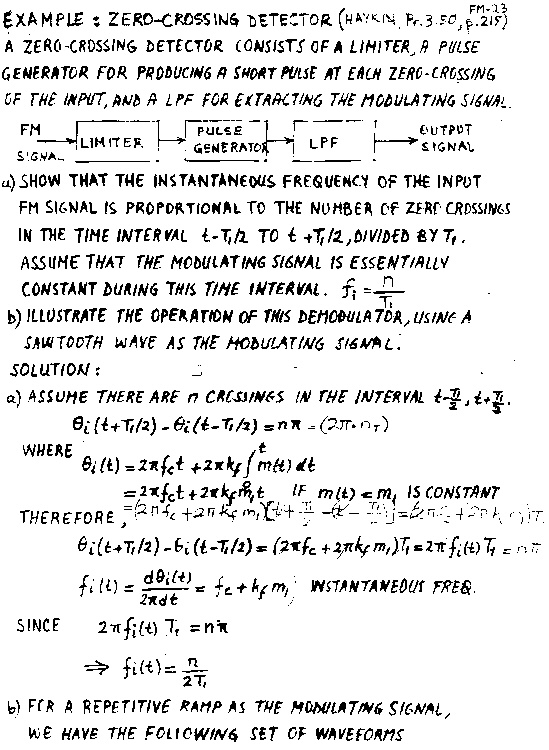 FM-23
EXAMPLE: ZERO-CROSSING DETECTOR (HAYKIN, Pr.3.50, p.215)
A ZERO-CROSSING DETECTOR CONSISTS OF A LIMITER, A PULSE
GENERATOR FOR PRODUCING A SHORT PULSE AT EACH ZERO-CROSSING
OF THE INPUT, AND A LPF FOR EXTRACTING THE MODULATING SIGNAL.
FM SIGNAL LIMITER PULSE GENERATOR LPF OUTPUT SIGNAL
a) SHOW THAT THE INSTANTANEOUS FREQUENCY OF THE INPUT
FM SIGNAL IS PROPORTIONAL TO THE NUMBER OF ZERO CROSSINGS
IN THE TIME INTERVAL t-T₁/2 TO t+T₁/2, DIVIDED BY T₁.
ASSUME THAT THE MODULATING SIGNAL IS ESSENTIALLY
CONSTANT DURING THIS TIME INTERVAL. fᵢ = n/T₁
b) ILLUSTRATE THE OPERATION OF THIS DEMODULATOR, USING A
SAWTOOTH WAVE AS THE MODULATING SIGNAL.
SOLUTION:
a) ASSUME THERE ARE n CROSSINGS IN THE INTERVAL t-T₁/2, t+T₁/2.
θᵢ(t+T₁/2) - θᵢ(t-T₁/2) = nπ = (2π·n_T)
WHERE θᵢ(t) = 2πf_c t + 2πk_f ∫₀ᵗ m(t) dt
= 2πf_c t + 2πk_f m₁ t IF m(t) = m₁ IS CONSTANT
THEREFORE, = (2πf_c + 2πk_f m₁)
θᵢ(t+T₁/2) - θᵢ(t-T₁/2) = (2πf_c + 2πk_f m₁)T₁ = 2πfᵢ(t)T₁ = nπ
fᵢ(t) = dθᵢ(t)/2πdt = f_c + k_f m₁ INSTANTANEOUS FREQ.
SINCE 2πfᵢ(t) T₁ = nπ
⇒ fᵢ(t) = n/2T₁
b) FOR A REPETITIVE RAMP AS THE MODULATING SIGNAL,
WE HAVE THE FOLLOWING SET OF WAVEFORMS